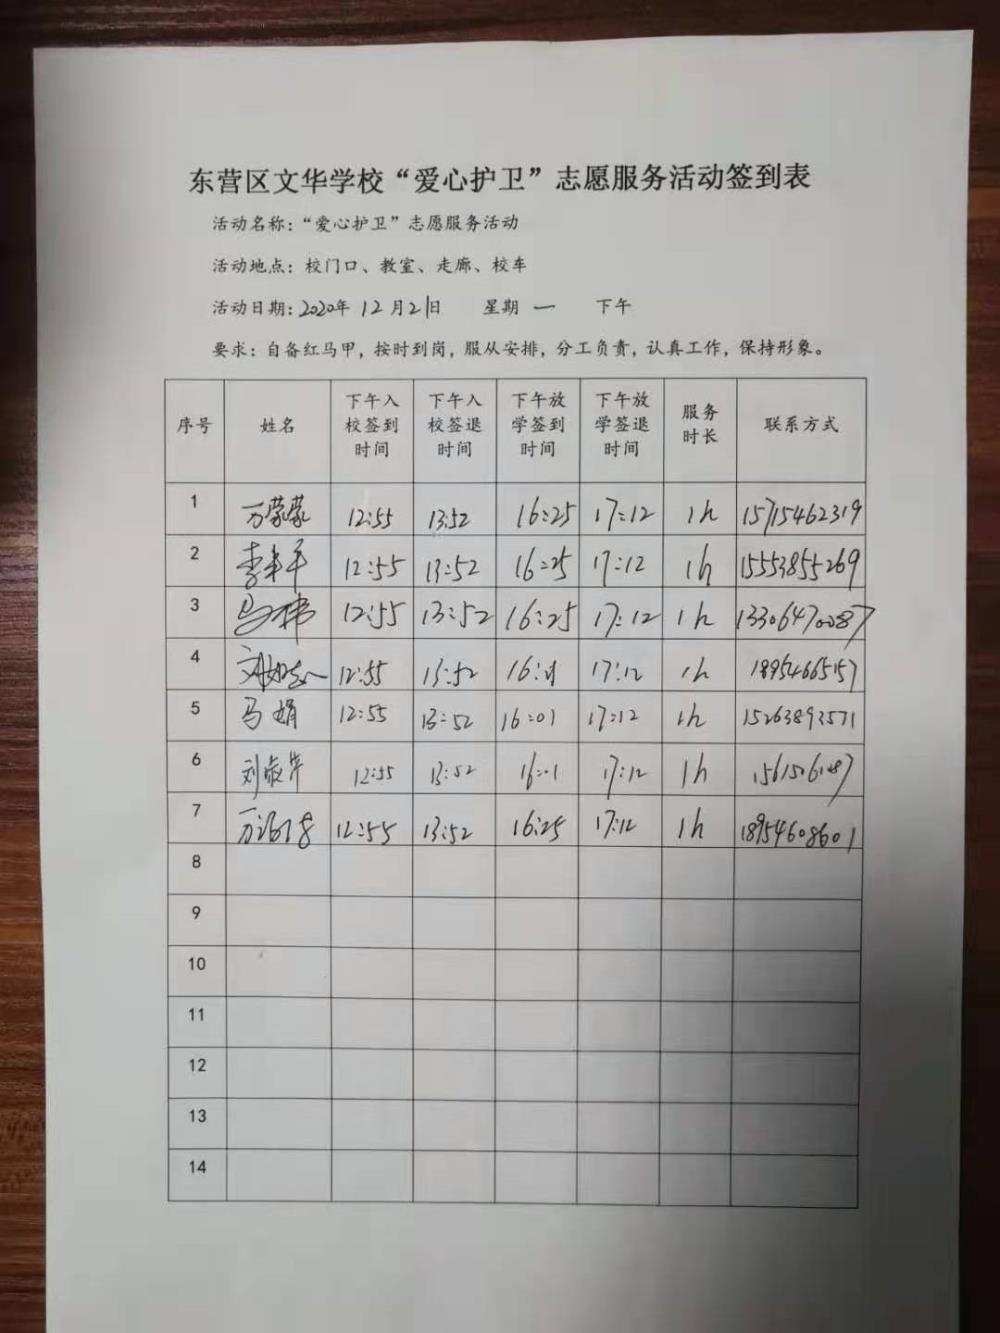 东营区文华学校“爱心护卫”志愿服务活动签到表
活动名称：“爱心护卫”志愿服务活动
活动地点：校门口、教室、走廊、校车
活动日期：2020年 12月21日 星期 一 下午
要求：自备红马甲，按时到岗，服从安排，分工负责，认真工作，保持形象。
序号 姓名 下午入校签到时间 下午入校签退时间 下午放学签到时间 下午放学签退时间 服务时长 联系方式
1 万蒙蒙 12:55 13:52 16:25 17:12 1h 15715462319
2 12:55 13:52 16:25 17:12 1h 15553855269
3 12:55 13:52 16:25 17:12 1h 13306470087
4 12:55 13:52 17:12 1h 18954665157
5 马娟 12:55 13:52 16:01 17:12 1h 15263893571
6 12:55 13:52 16:01 17:12 1h
7 12:55 13:52 16:25 17:12 1h 18954608601
8
9
10
11
12
13
14